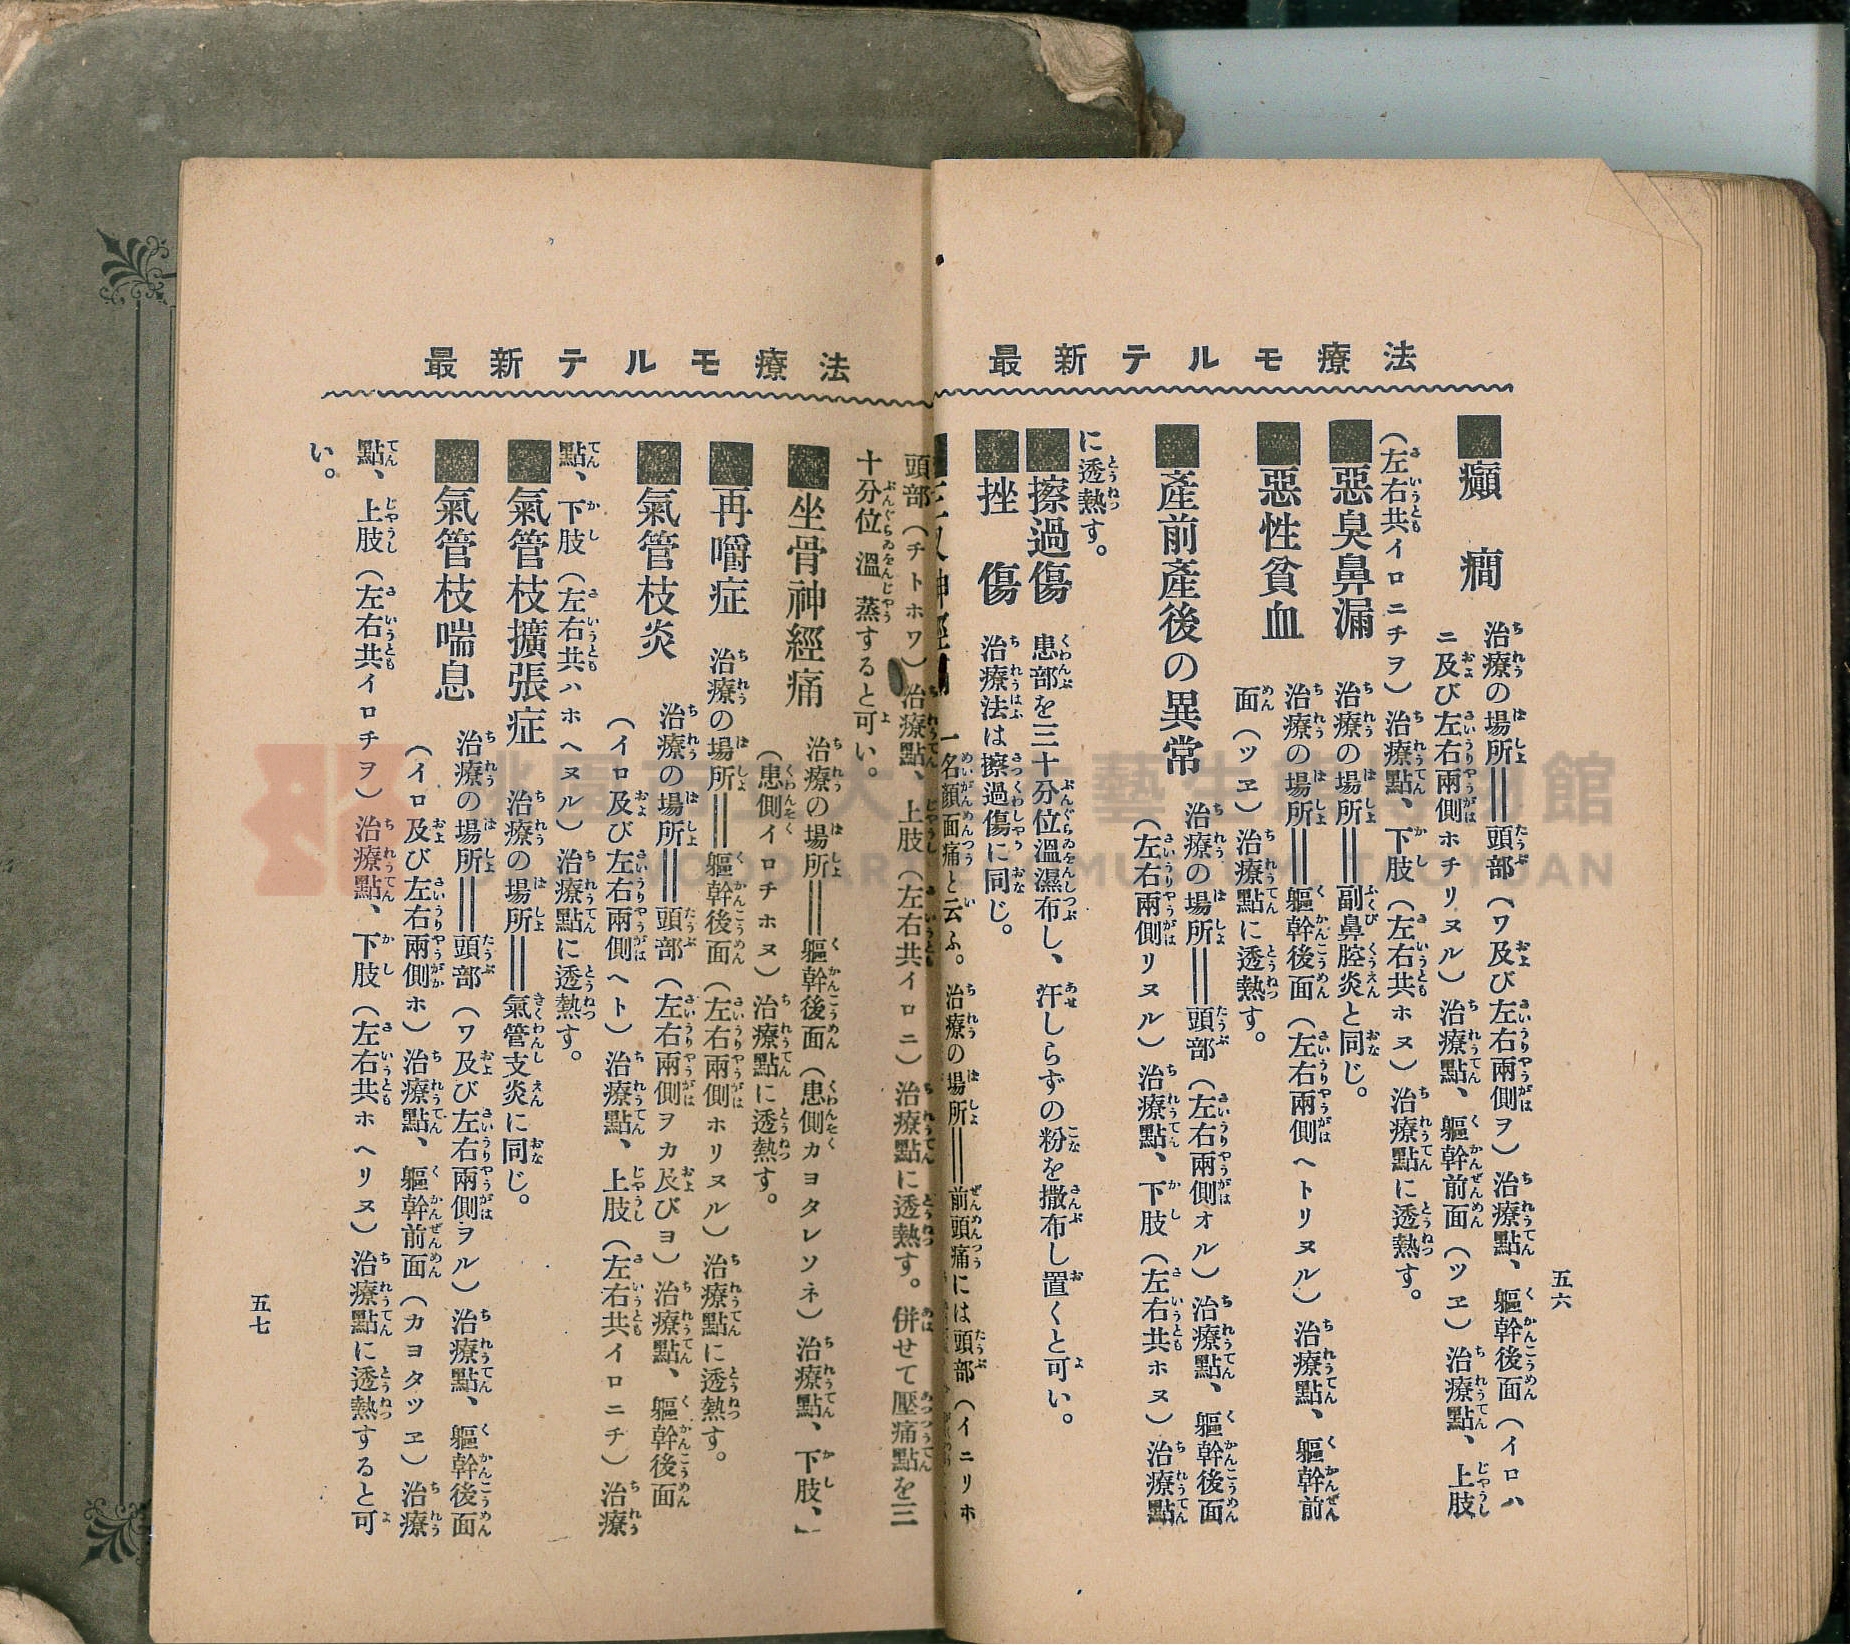 最新テルモ療法
五六
■癲癇 治療の場所＝頭部（ワ及び左右兩側ヲ）治療點、軀幹後面（イロハ
ニ及び左右兩側ホチリヌル）治療點、軀幹前面（ツヱ）治療點、上肢
（左右共イロニチヲ）治療點、下肢（左右共ホヌ）治療點に透熱す。
■惡臭鼻漏 治療の場所＝副鼻腔炎と同じ。
■惡性貧血 治療の場所＝軀幹後面（左右兩側ヘトリヌル）治療點、軀幹前
面（ツヱ）治療點に透熱す。
■產前產後の異常 治療の場所＝頭部（左右兩側オル）治療點、軀幹後面
（左右兩側リヌル）治療點、下肢（左右共ホヌ）治療點
に透熱す。
■擦過傷 患部を三十分位溫濕布し、汗しらずの粉を撒布し置くと可い。
■挫傷 治療法は擦過傷に同じ。
一名顏面痛と云ふ。治療の場所＝前頭痛には頭部（イニリホ
最新テルモ療法
頭部（チトホワ）治療點、上肢（左右共イロニ）治療點に透熱す。併せて壓痛點を三
十分位溫蒸すると可い。
■坐骨神經痛 治療の場所＝軀幹後面（患側カヨタレソネ）治療點、下肢、
（患側イロチホヌ）治療點に透熱す。
■再嚼症 治療の場所＝軀幹後面（左右兩側ホリヌル）治療點に透熱す。
■氣管枝炎 治療の場所＝頭部（左右兩側ヲカ及びヨ）治療點、軀幹後面
（イロ及び左右兩側ヘト）治療點、上肢（左右共イロニチ）治療
點、下肢（左右共ハホヘヌル）治療點に透熱す。
■氣管枝擴張症 治療の場所＝氣管支炎に同じ。
■氣管枝喘息 治療の場所＝頭部（ワ及び左右兩側ヲル）治療點、軀幹後面
（イロ及び左右兩側ホ）治療點、軀幹前面（カヨタツヱ）治療
點、上肢（左右共イロチヲ）治療點、下肢（左右共ホヘリヌ）治療點に透熱すると可
い。
五七